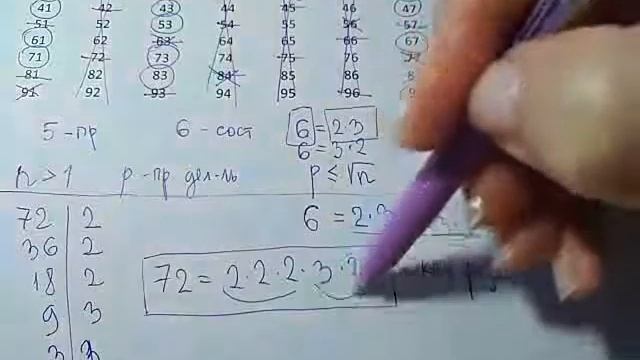 41 42 43 44 45 46 47
51 52 53 54 55 56 57
61 62 63 64 65 66 67
71 72 73 74 75 76 77
81 82 83 84 85 86
91 92 93 94 95 96
5 - пр 6 - сост 6 = 2·3
6 = 3·2
n > 1 p - пр дел-ль p ≤ √n
72 | 2 6 = 2·3
36 | 2
18 | 2 72 = 2·2·2·3·
9 | 3
3 | 3